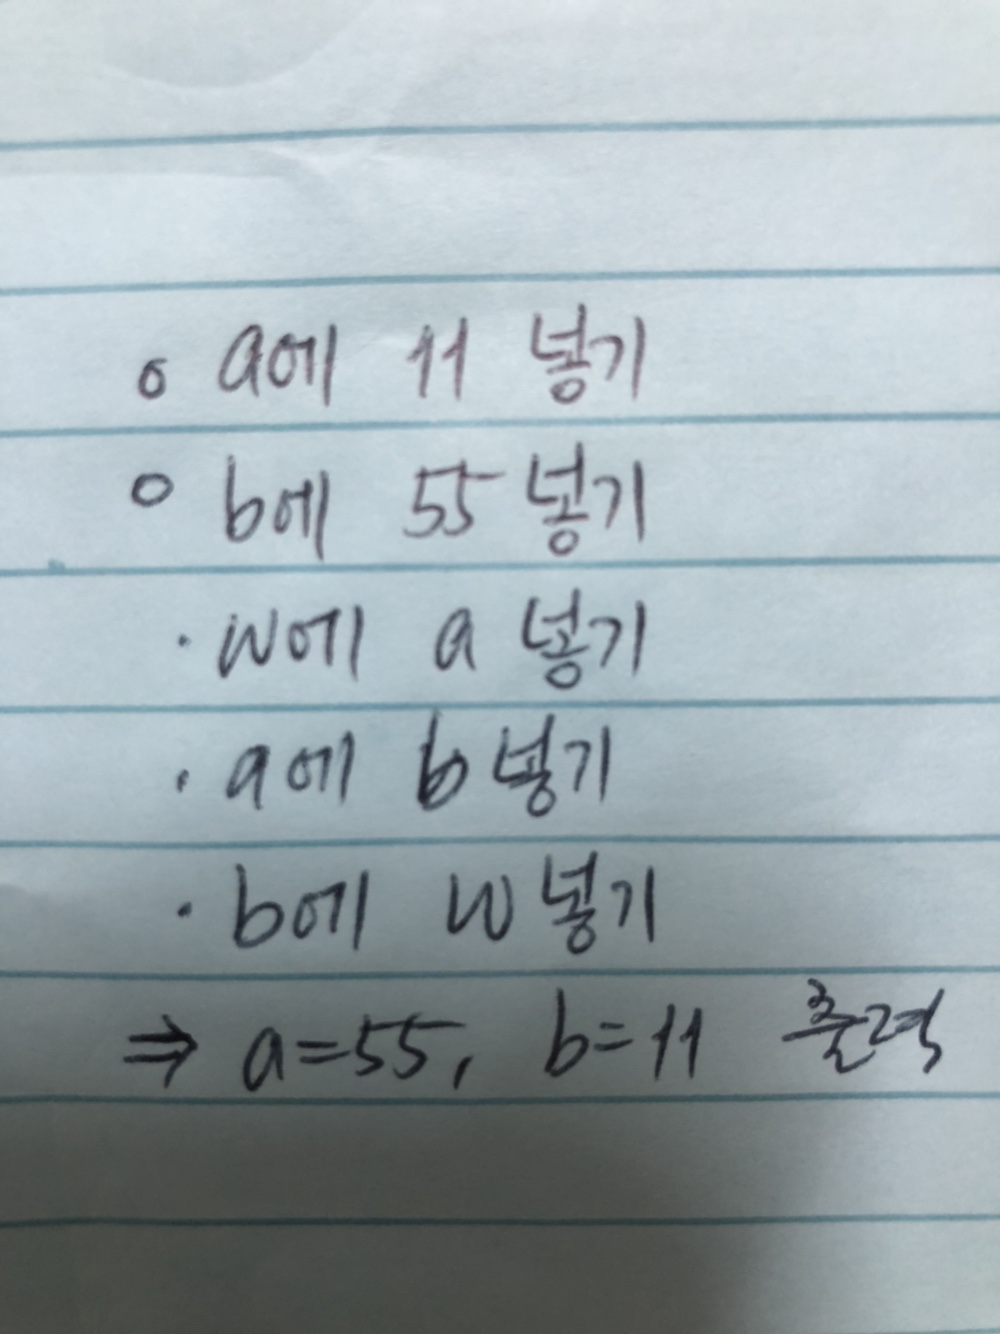 o a에 11 넣기
o b에 55 넣기
· w에 a 넣기
· a에 b 넣기
· b에 w 넣기
⇒ a=55, b=11 출력